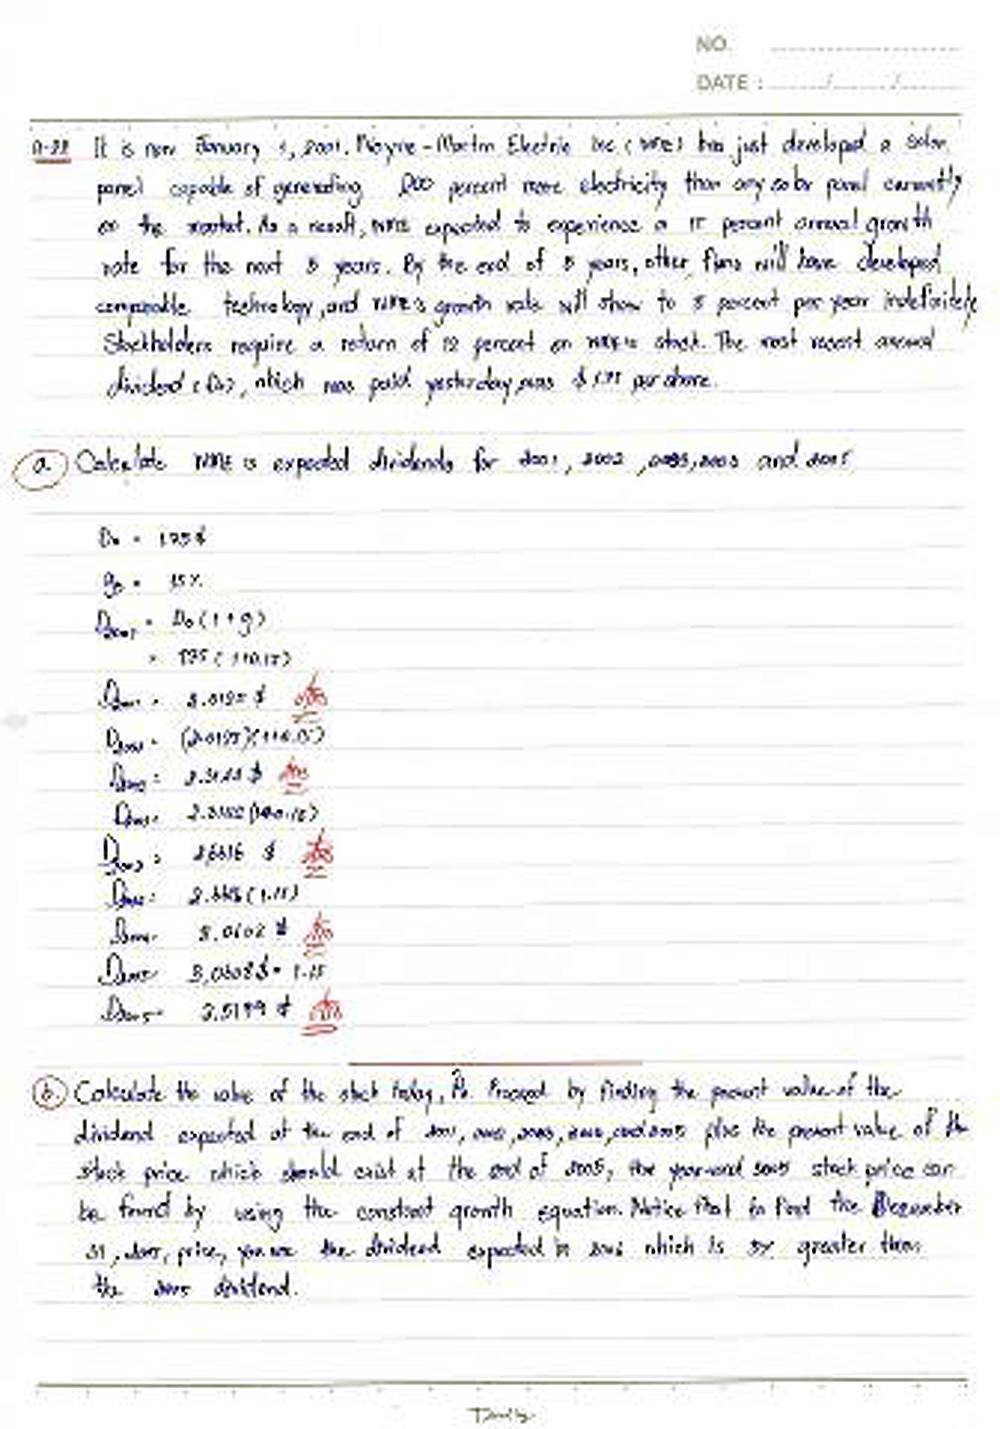 NO.
DATE : / /
It is now January 1, 2001. Wayne-Martin Electric Inc. (WME) has just developed a solar
panel capable of generating 200 percent more electricity than any solar panel currently
on the market. As a result, WME expected to experience a 15 percent annual growth
rate for the next 5 years. By the end of 5 years, other firms will have developed
comparable technology, and WME's growth rate will show to 5 percent per year indefinitely
Stockholders require a return of 12 percent on WME's stock. The most recent annual
dividend (D0), which was paid yesterday, was $1.75 per share.
a Calculate WME is expected dividends for 2001, 2002, and 2005
D0 = 1.75 $
15%
= D0 (1+g)
= 1.75 (1+0.15)
D2001 = 2.0125 $ Ans
(2.0125)(1+0.15)
$ Ans
(1+0.15)
2.6616 $ Ans
(1.15)
$ Ans
1.15
3.5199 $ Ans
b Calculate the value of the stock today, P̂0. Proceed by finding the present value of the
dividend expected at the end of 2001, 2002, 2003, and 2005 plus the present value of the
stock price which should exist at the end of 2005, the year-end 2005 stock price can
be found by using the constant growth equation. Notice that to find the December
31, 2005, price, you use the dividend expected in 2006 which is 5% greater than
the 2005 dividend.